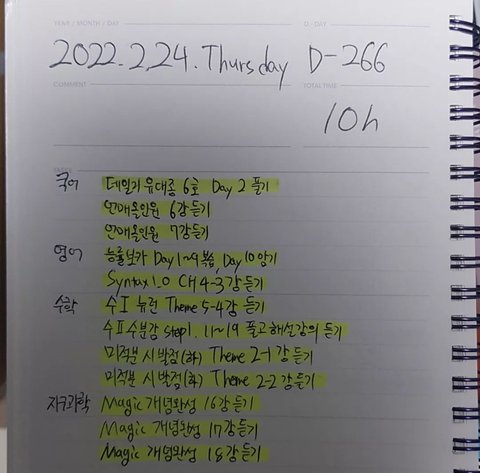 YEAR / MONTH / DAY D-DAY
2022.2.24.Thursday D-266
COMMENT TOTAL TIME
10h
TASKS
국어 데일리 유대종 6호 Day 2 풀기
언매올인원 6강듣기
언매올인원 7강듣기
영어 능률보카 Day1~9 복습, Day 10 암기
Syntax 1.0 CH 4-3강 듣기
수학 수I 뉴런 Theme 5-4강 듣기
수II 수분감 Step1. 11~19 풀고 해설강의 듣기
미적분 시발점(하) Theme 2-1 강 듣기
미적분 시발점(하) Theme 2-2 강 듣기
지구과학 Magic 개념완성 16강 듣기
Magic 개념완성 17강듣기
Magic 개념완성 18강듣기